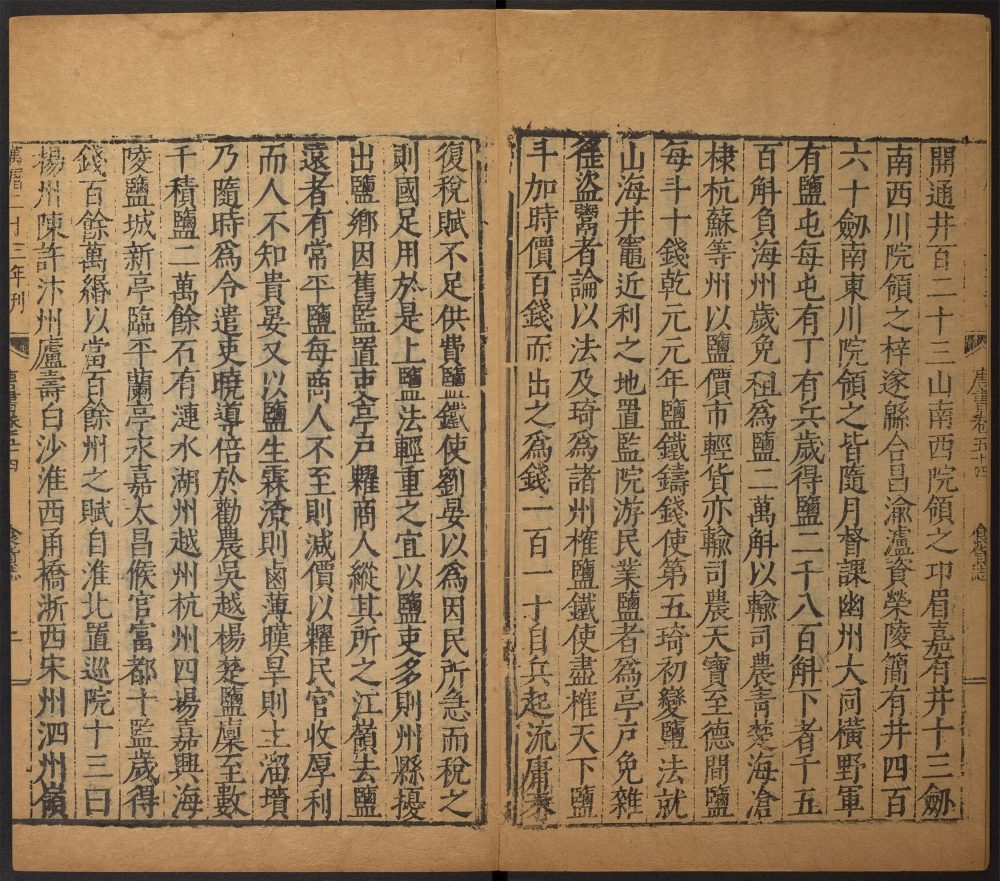 開通井百二十三山南西院領之邛眉嘉有井十三劒
南西川院領之梓遂緜合昌渝瀘資榮陵簡有井四百
六十劒南東川院領之皆隨月督課幽州大同橫野軍
有鹽屯每屯有丁有兵歲得鹽二千八百斛下者千五
百斛負海州歲免租爲鹽二萬斛以輸司農青楚海滄
棣杭蘇等州以鹽價市輕貨亦輸司農天寶至德間鹽
每斗十錢乾元元年鹽鐵鑄錢使第五琦初變鹽法就
山海井竈近利之地置監院游民業鹽者爲亭戸免雜
徭盜鬻者論以法及琦爲諸州榷鹽鐵使盡榷天下鹽
斗加時價百錢而出之爲錢一百一十自兵起流庸未
唐書卷五十四
食貨志
復税賦不足供費鹽鐵使劉晏以爲因民所急而税之
則國足用於是上鹽法輕重之宜以鹽吏多則州縣擾
出鹽鄉因舊監置吏亭戸糶商人縱其所之江嶺去鹽
遠者有常平鹽每商人不至則減價以糶民官收厚利
而人不知貴晏又以鹽生霖潦則鹵薄暵旱則土溜墳
乃隨時爲令遣吏曉導倍於勸農吳越楊楚鹽廩至數
千積鹽二萬餘石有漣水湖州越州杭州四場嘉興海
陵鹽城新亭臨平蘭亭永嘉太昌候官富都十監歲得
錢百餘萬緡以當百餘州之賦自淮北置巡院十三曰
揚州陳許汴州廬壽白沙淮西甬橋浙西宋州泗州嶺
萬曆二十三年刊
唐書卷五十四
食貨志
二